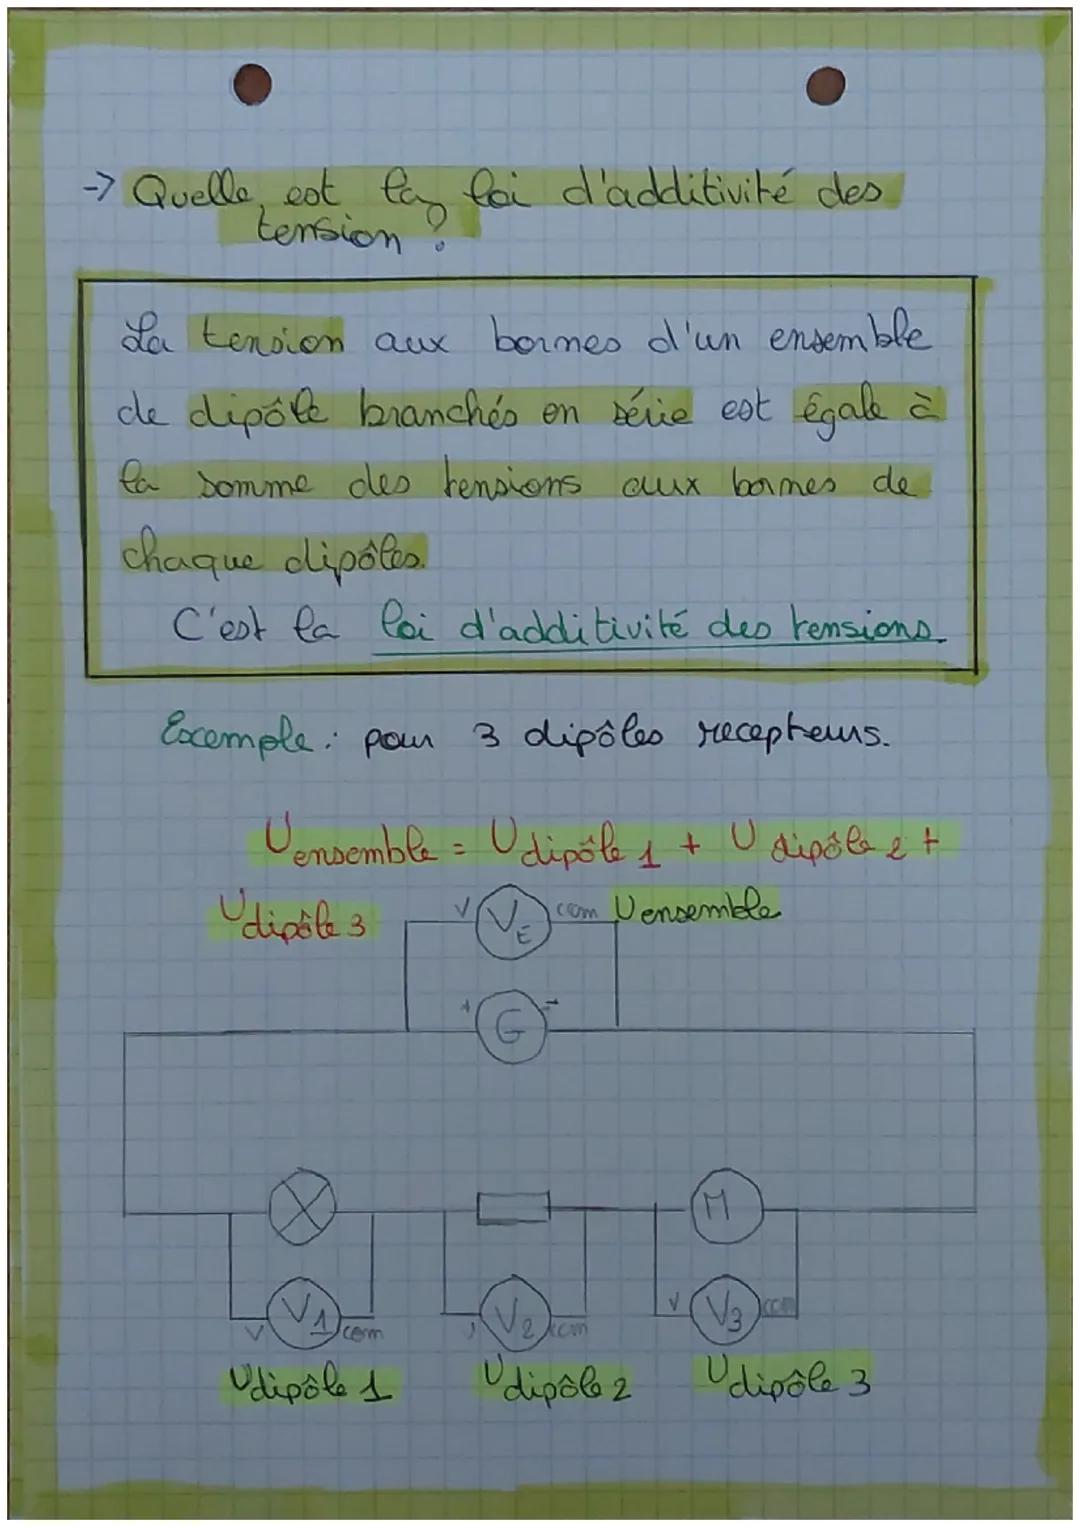 -> Quelle est la loi d'additivité des
tension ?
La tension aux bornes d'un ensemble
de dipôle branchés en série est égale à
la somme des tensions aux bornes de
chaque dipôles.
C'est la loi d'additivité des tensions.
Exemple : pour 3 dipôles recepteurs.
U ensemble = U dipôle 1 + U dipôle 2 +
U dipôle 3
V VE com U ensemble
+ G -
M
V V1 com
V2 com
V V3 com
U dipôle 1 U dipôle 2 U dipôle 3